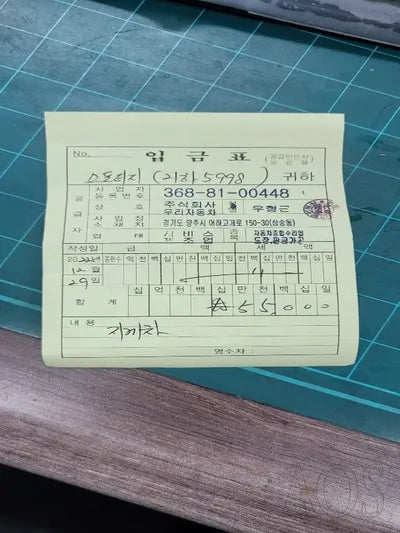 No.
입금표 (공급받는자 보관용)
스포티지 (기차5998) 귀하
공급자
사업자등록번호 368-81-00448
상호 주식회사 우리자동차 성명 우형근
사업장소재지 경기도 양주시 어하고개로 150-30(삼숭동)
업태 서비스 제조업 종목 자동차종합수리업 도장,판금가공
작성일 공급가액 세액
2022년 공란수 억 천 백 십 만 천 백 십 일 천 백 십 만 천 백 십 일
12월
29일
합계 십 억 천 백 십 만 천 백 십 일
₩ 5 5 0 0 0
내용
영수자 :